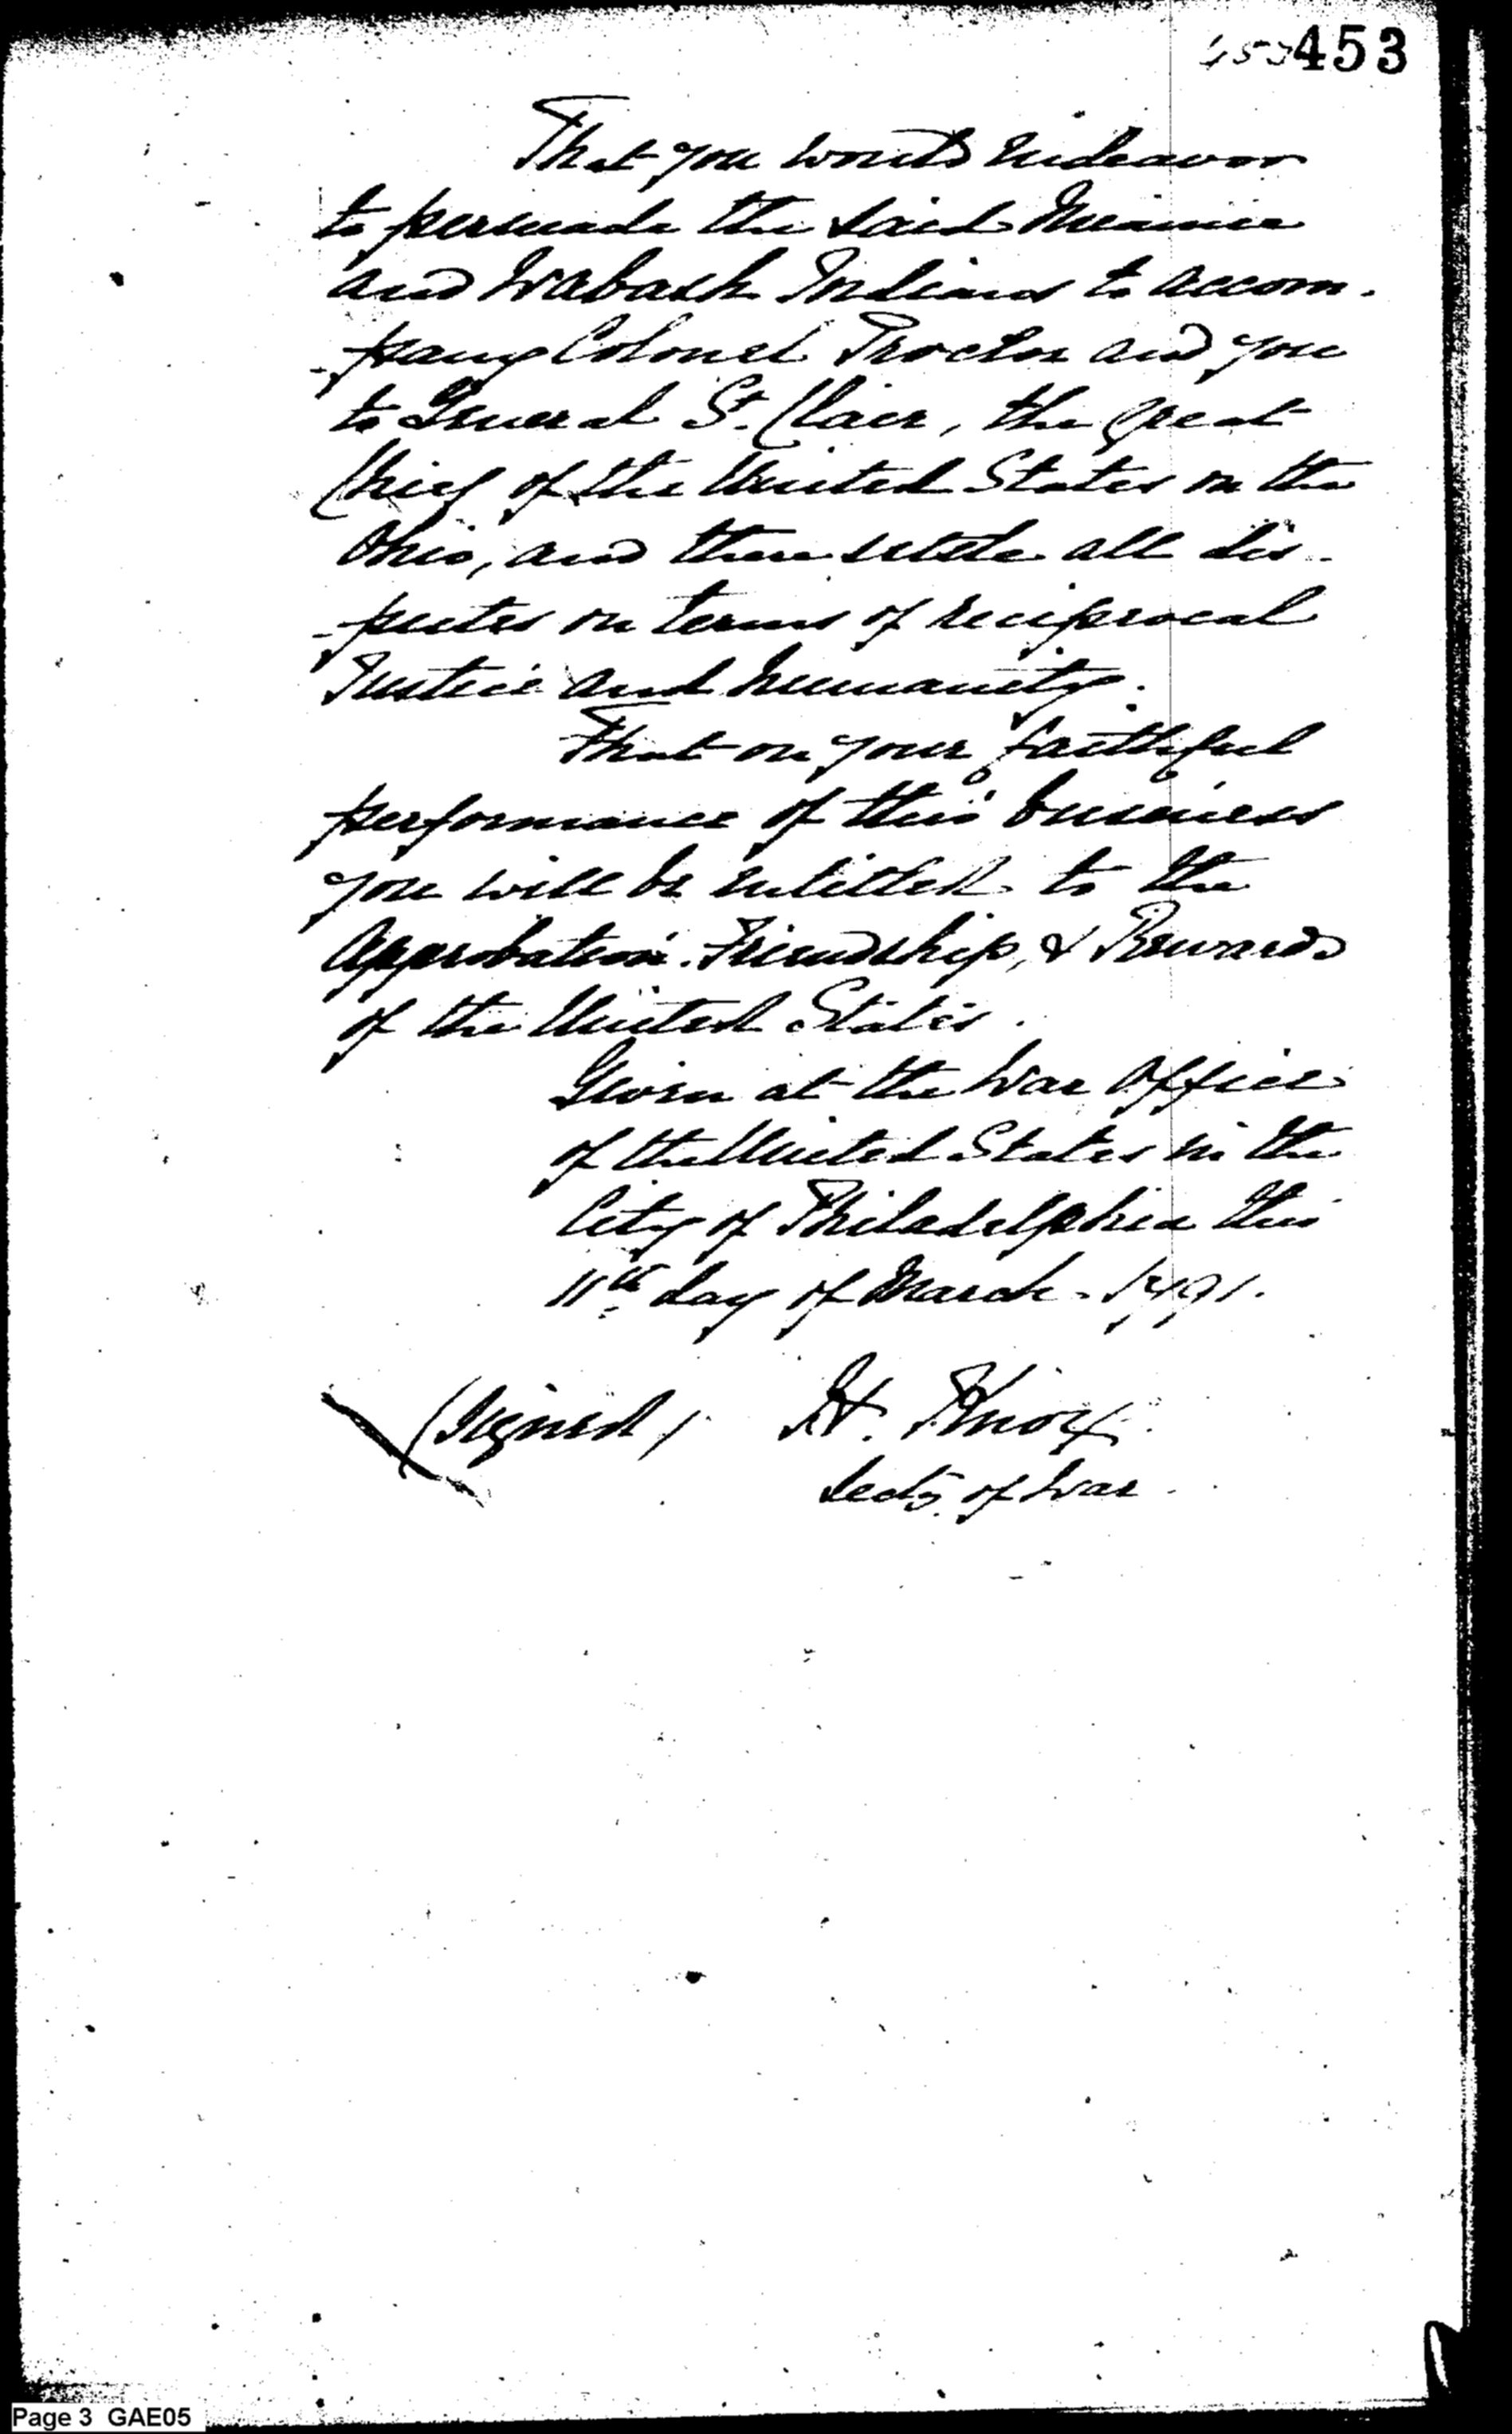 453 453
That you would endeavor
to persuade the said Miamie
and Wabash Indians to accom-
-pany Colonel Proctor and you
to General St. Clair, the great
Chief of the United States on the
Ohio, and there settle all dis-
-putes on terms of reciprocal
Justice and humanity.
That on your faithful
performance of this business
you will be entitled to the
Approbation. Friendship, & Rewards
of the United States.
Given at the War Office
of the United States in the
City of Philadelphia this
11th day of March. 1791.
(Signed) H. Knox
Secty. of War
Page 3 GAE05